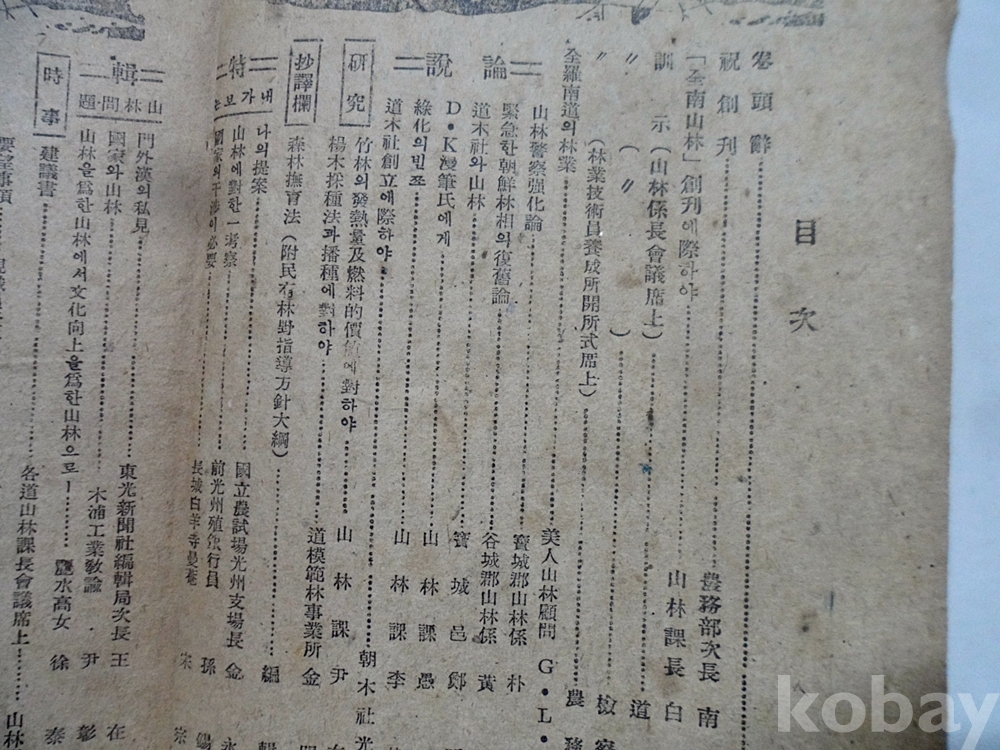 目次
卷頭辭
祝創刊 農務部次長 南
「全南山林」創刊에際하야 山林課長 白
訓示(山林係長會議席上) 道
〃 ( 〃 ) 檢察
〃 (林業技術員養成所開所式席上) 農務
全羅南道의林業
論說
山林警察强化論 美人山林顧問 G・L・
緊急한朝鮮林相의復舊論 寶城郡山林係 朴
道木社와山林 谷城郡山林係 黃
D・K漫筆氏에게 寶城邑 鄭
綠化의빈쪼 山林課 愚
道木社創立에際하야 山林課 李
硏究
竹林의發熱量及燃料的價値에對하야 朝木社 光
楊木採種法과播種에對하야 山林課 尹
抄譯欄
森林撫育法(附民有林野指導方針大綱) 道模範林事業所 金
特輯
내가보는
山林問題
나의提案 編輯
山林에對한一考察 國立農試場光州支場長 金永
國家의干涉이必要 前光州殖銀行員 孫錫
長城白羊寺 宋宗
門外漢의私見 東光新聞社編輯局次長 王在
國家와山林 木浦工業敎諭 尹彰
山林을爲한山林에서文化向上을爲한山林으로ー 麗水高女 徐泰
時事
建議書 各道山林課長會議席上 山林
要望事項
kobay